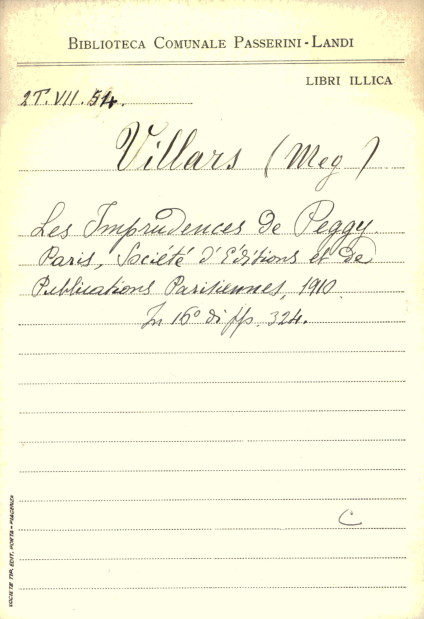 BIBLIOTECA COMUNALE PASSERINI-LANDI
LIBRI ILLICA
2T.VII.54.
Villars (Meg)
Les Imprudences de Peggy
Paris, Société d'Éditions et de
Publications Parisiennes, 1910
In 16° di pp. 324.
C
SOCIETÀ TIP. EDIT. PORTA - PIACENZA